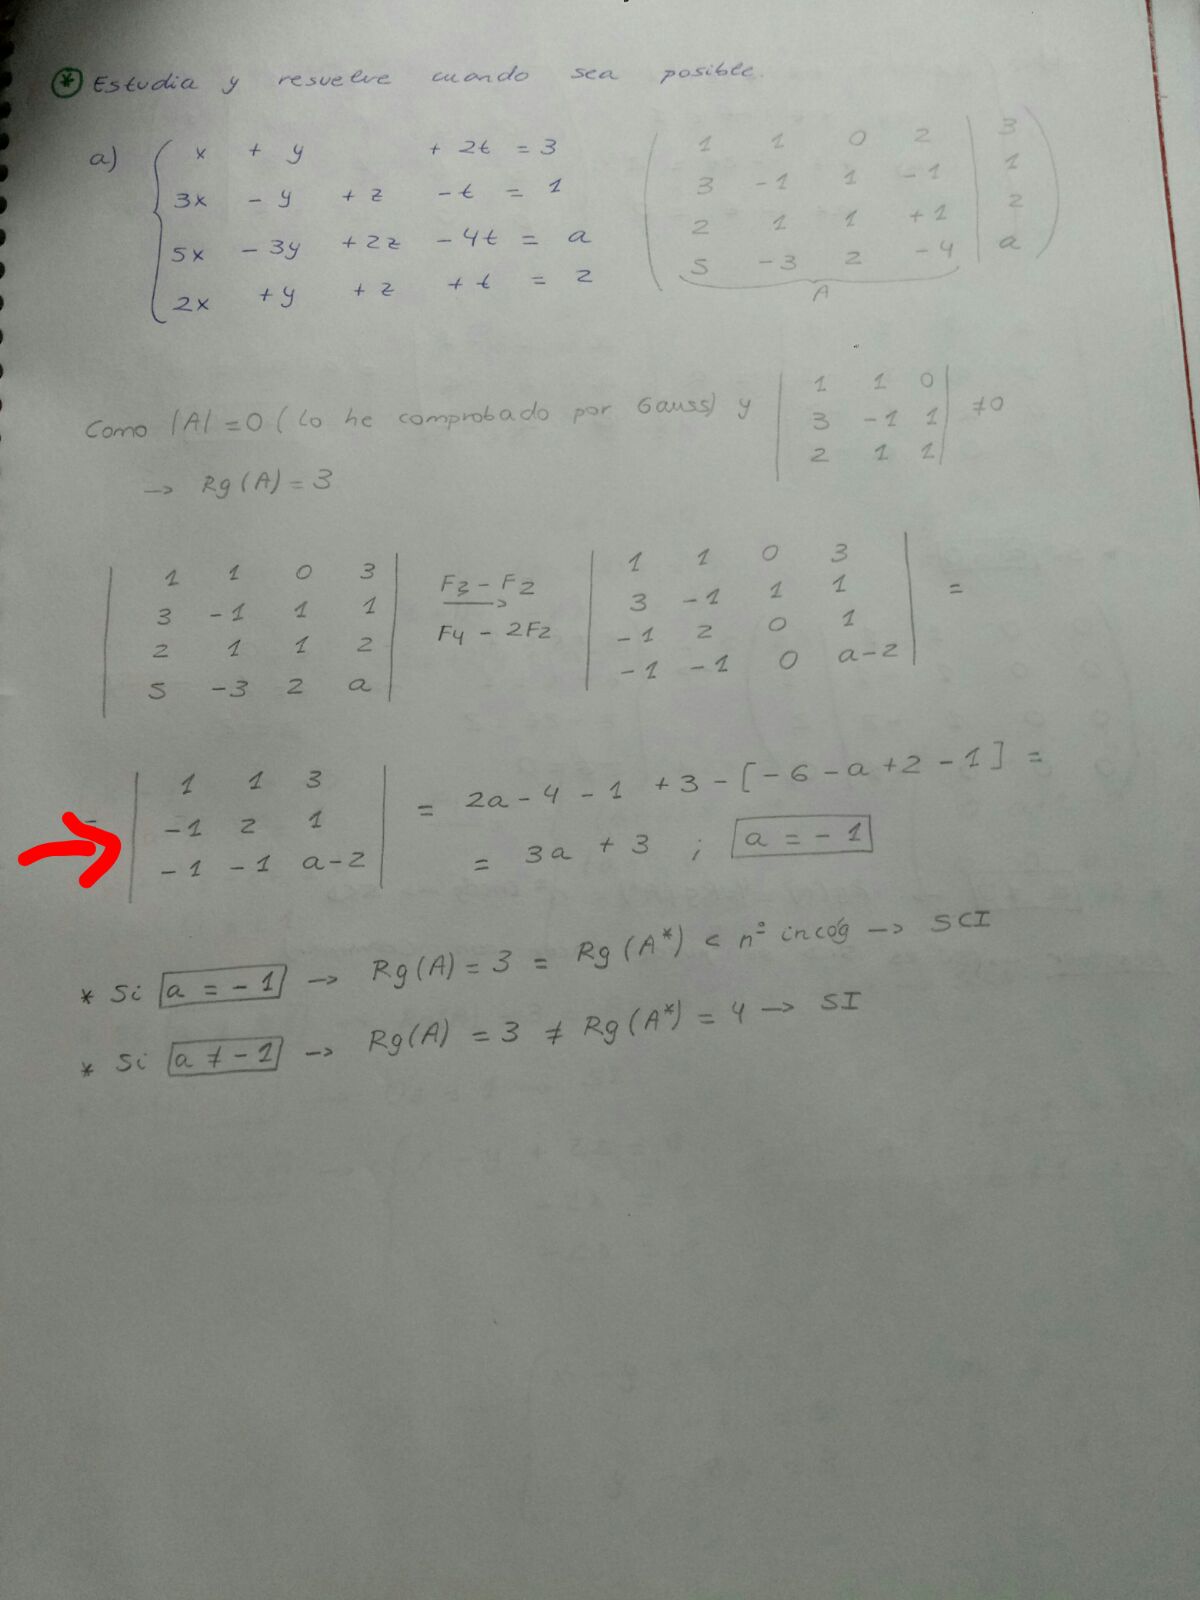 * Estudia y resuelve cuando sea posible.
a) { x + y + 2t = 3
3x - y + z - t = 1
5x - 3y + 2z - 4t = a
2x + y + z + t = 2
( 1 1 0 2 | 3 )
3 -1 1 -1 | 1
2 1 1 +1 | 2
5 -3 2 -4 | a
A
Como |A| = 0 (lo he comprobado por Gauss) y | 1 1 0 | ≠0
3 -1 1
2 1 1
→ Rg(A) = 3
| 1 1 0 3 |
3 -1 1 1
2 1 1 2
5 -3 2 a
F3 - F2
→
F4 - 2F2
| 1 1 0 3 | =
3 -1 1 1
-1 2 0 1
-1 -1 0 a-2
- | 1 1 3 | = 2a - 4 - 1 + 3 - [-6 - a + 2 - 1] =
-1 2 1
-1 -1 a-2
= 3a + 3 ; a = -1
* Si a = -1 → Rg(A) = 3 = Rg(A*) < nº incóg → SCI
* Si a ≠ -1 → Rg(A) = 3 ≠ Rg(A*) = 4 → SI